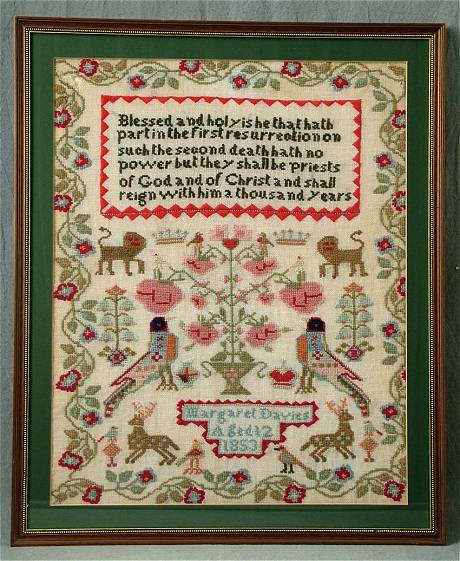 Blessed and holy is he that hath
part in the first resurrection on
such the second death hath no
power but they shall be priests
of God and of Christ and shall
reign with him a thousand years
Margaret Davies
Aged 12
1853